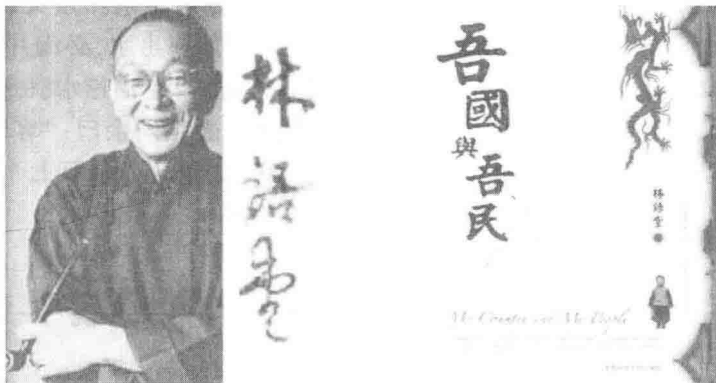 林語堂
吾國與吾民
林語堂 著
My Country and My People